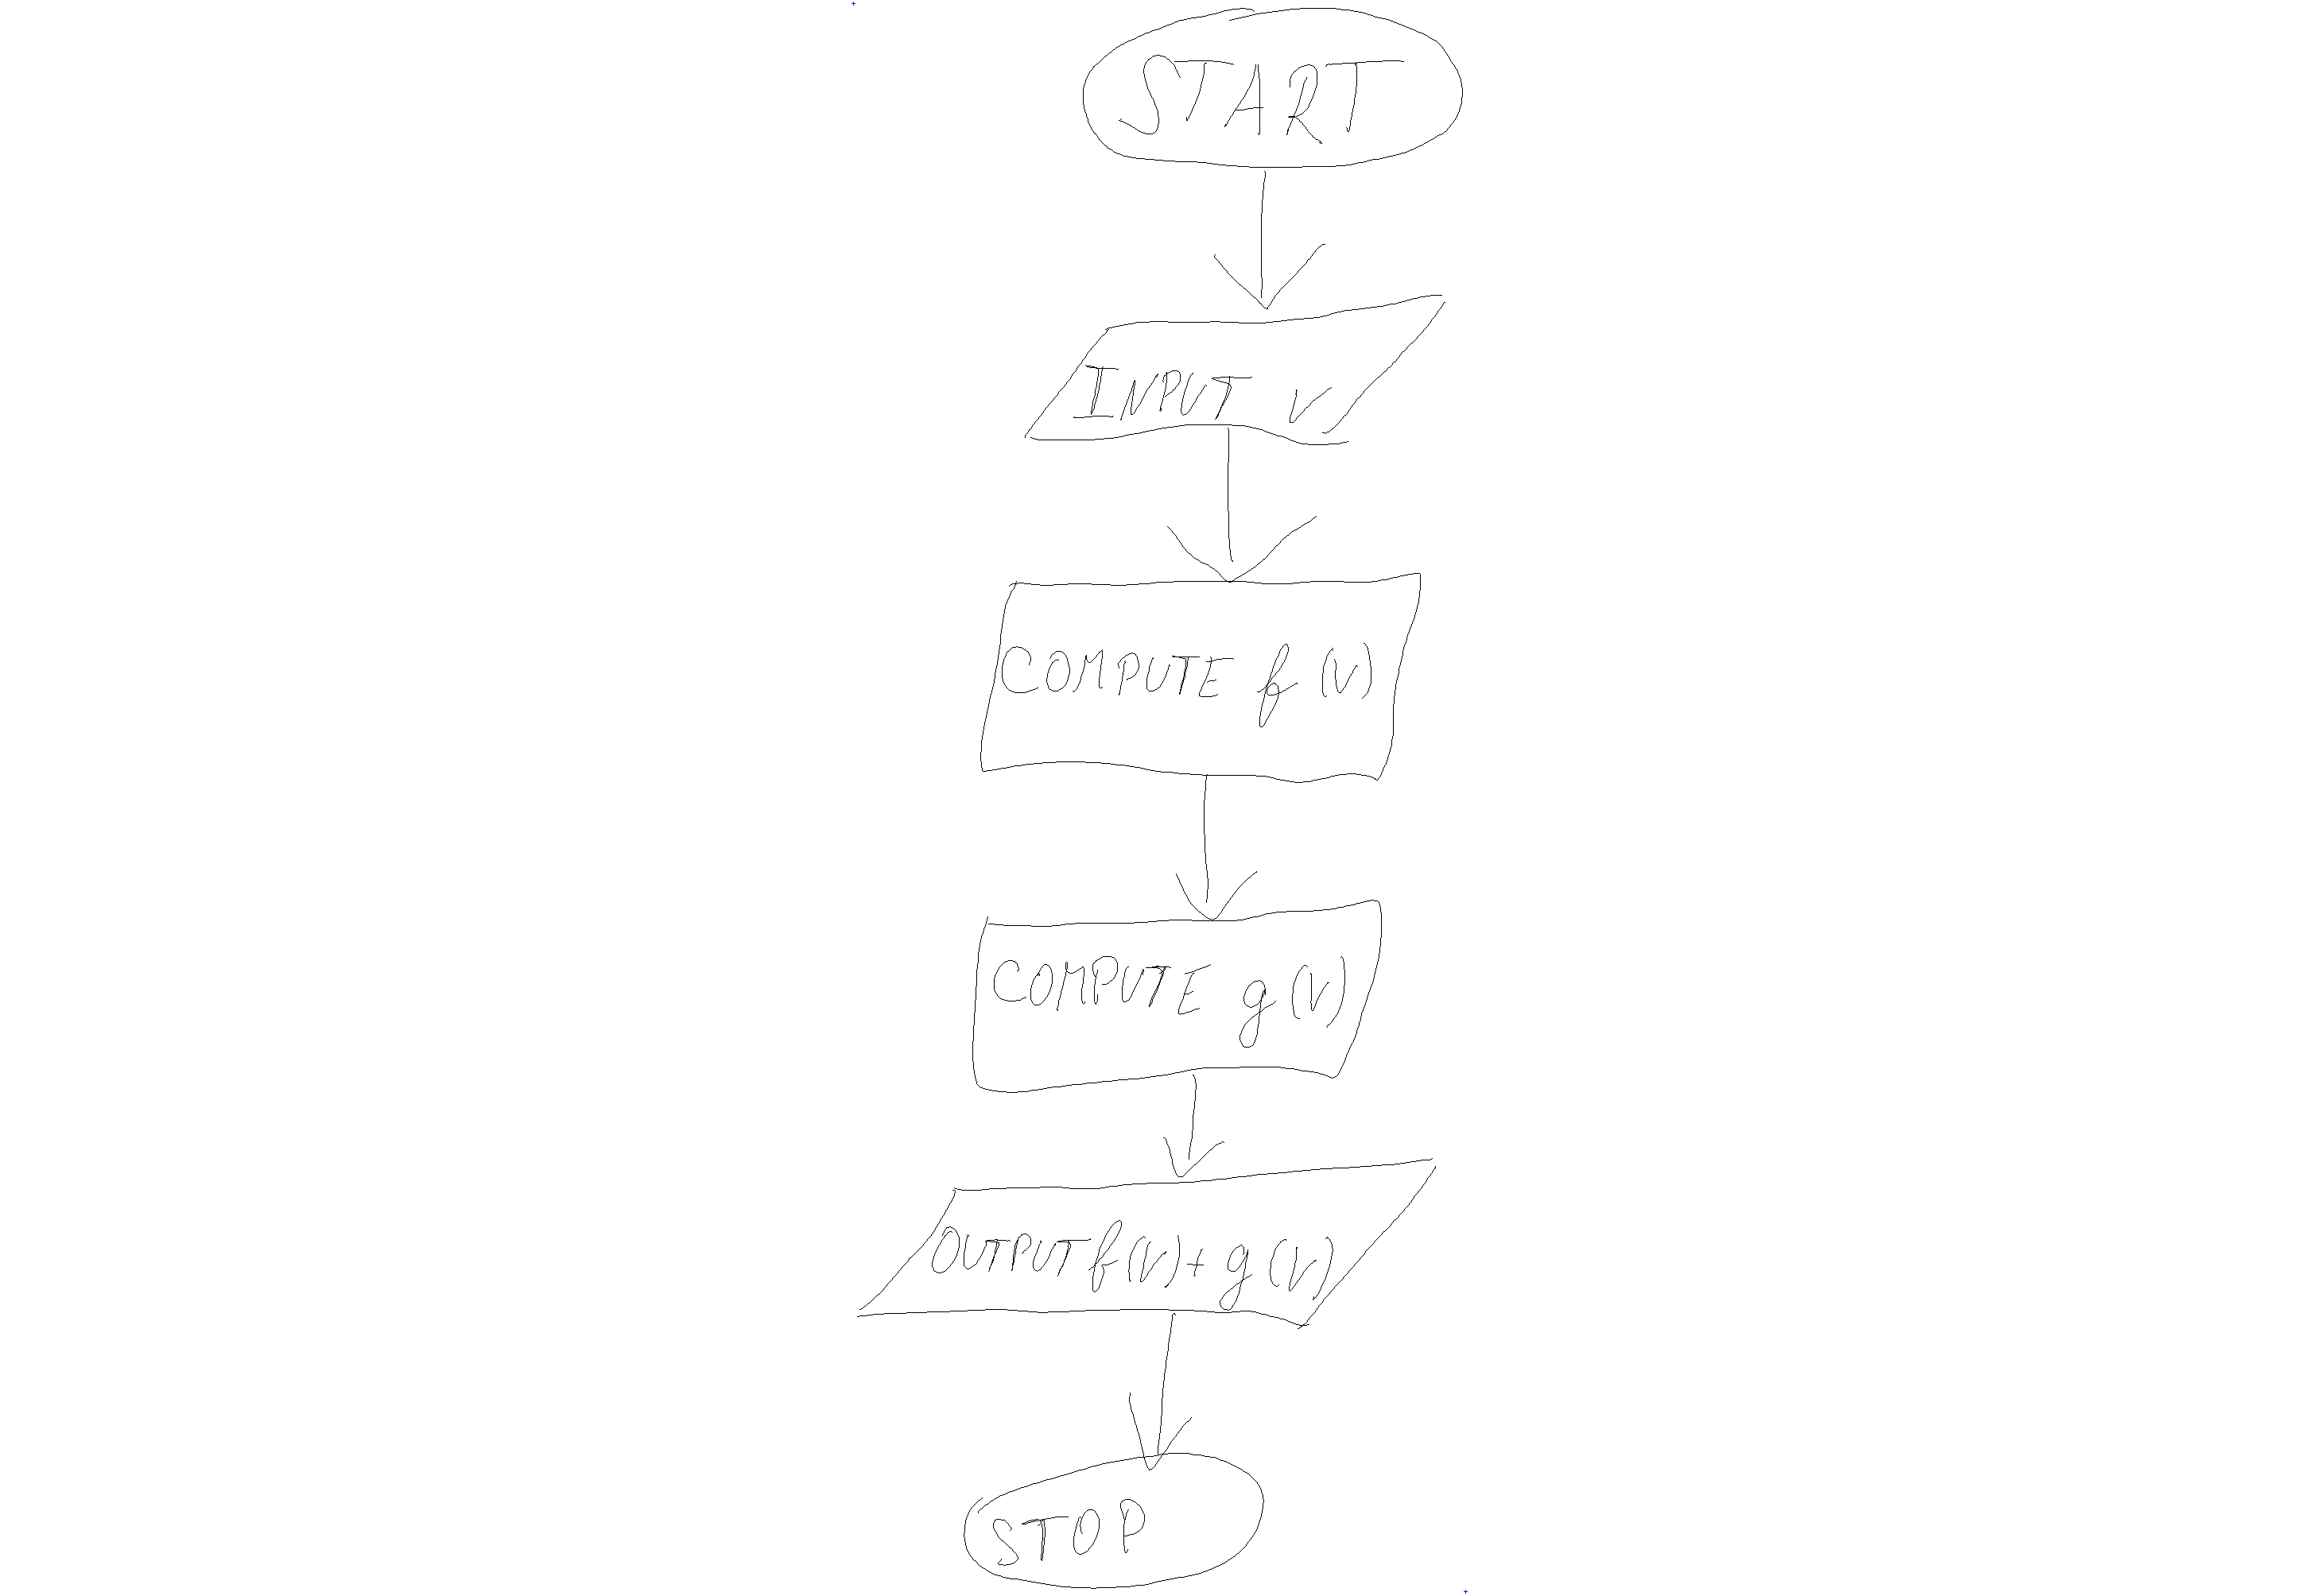 START
INPUT v
COMPUTE f(v)
COMPUTE g(v)
OUTPUT f(v)+g(v)
STOP